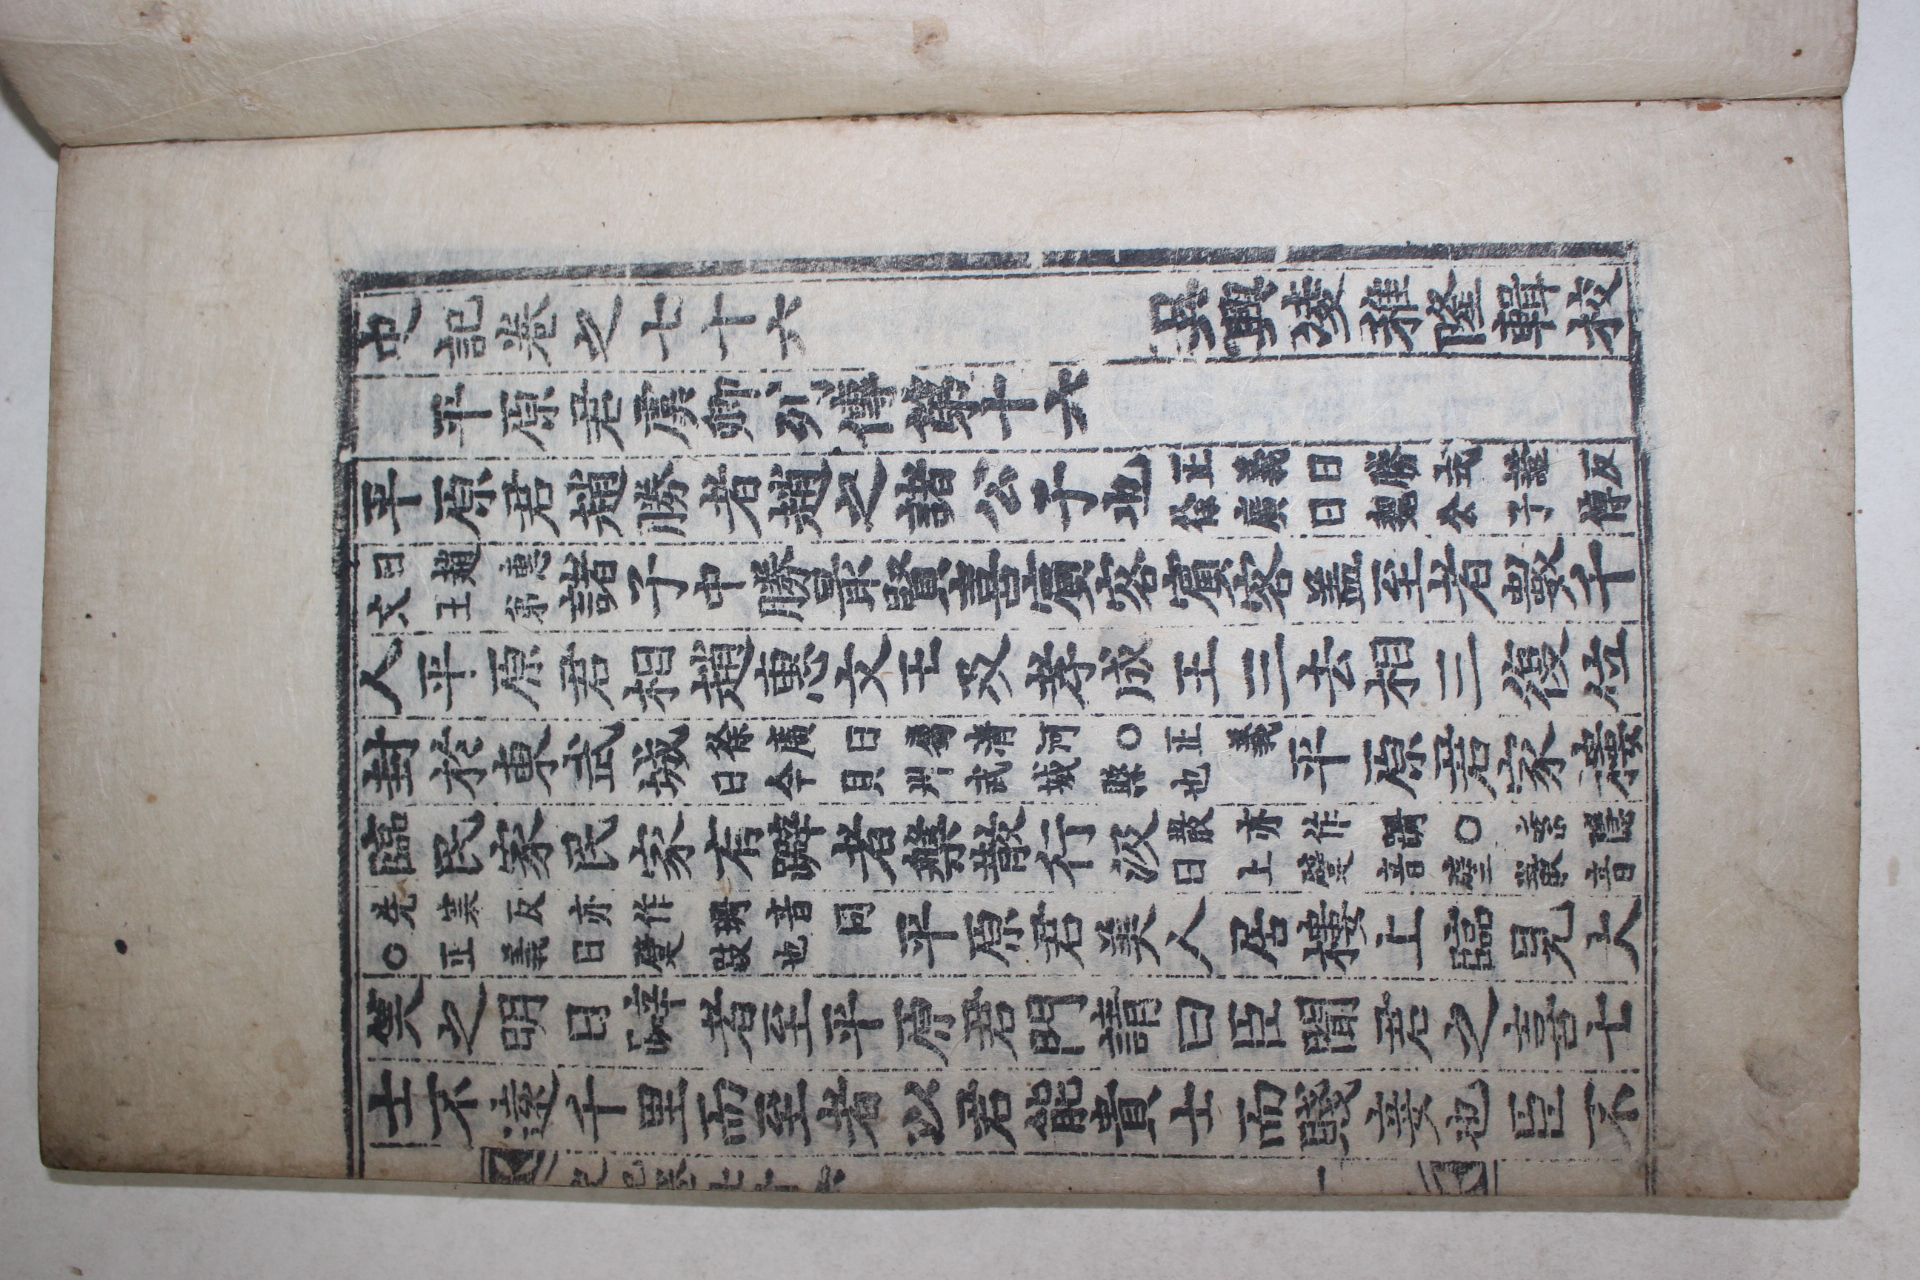 史記卷之七十六　吳興凌稚隆輯校
平原君虞卿列傳第十六
平原君趙勝者趙之諸公子也正義曰勝式證反徐廣曰魏公子傳
曰趙惠文王弟諸子中勝最賢喜賓客賓客盖至者數千
人平原君相趙惠文王及孝成王三去相三復位
封於東武城徐廣曰屬清河○正義曰今貝州武城縣也平原君家樓
臨民家民家有躃者槃散行汲散亦作跚○索隱曰上躄音壁散音
先寒反亦作跚音同○正義曰躄跛也平原君美人居樓上臨見大
笑之明日躃者至平原君門請曰臣聞君之喜士
士不遠千里而至者以君能貴士而賤妾也臣不
史記卷七十六　一